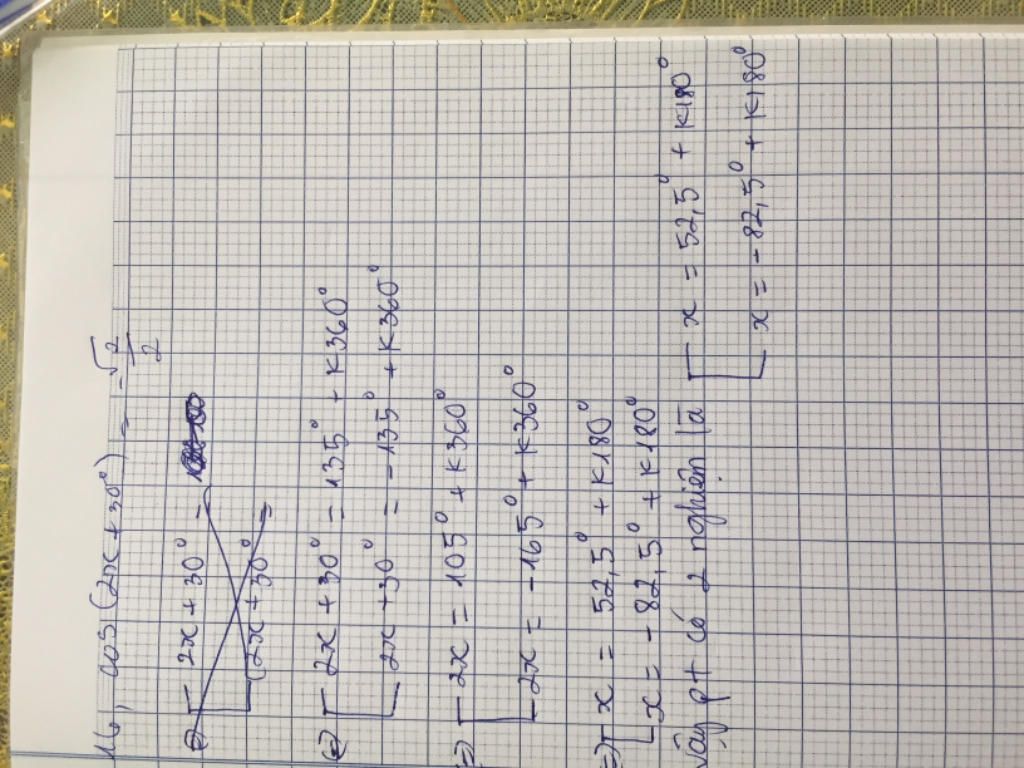 16, cos (2x + 30°) = -√2/2
⇔ [ 2x + 30° =
[ 2x + 30° =
⇔ [ 2x + 30° = 135° + K360°
2x + 30° = -135° + K360°
⇒ [ 2x = 105° + K360°
2x = -165° + K360°
⇒ [ x = 52,5° + K180°
x = -82,5° + K180°
vậy pt có 2 nghiệm là [ x = 52,5° + K180°
x = -82,5° + K180°